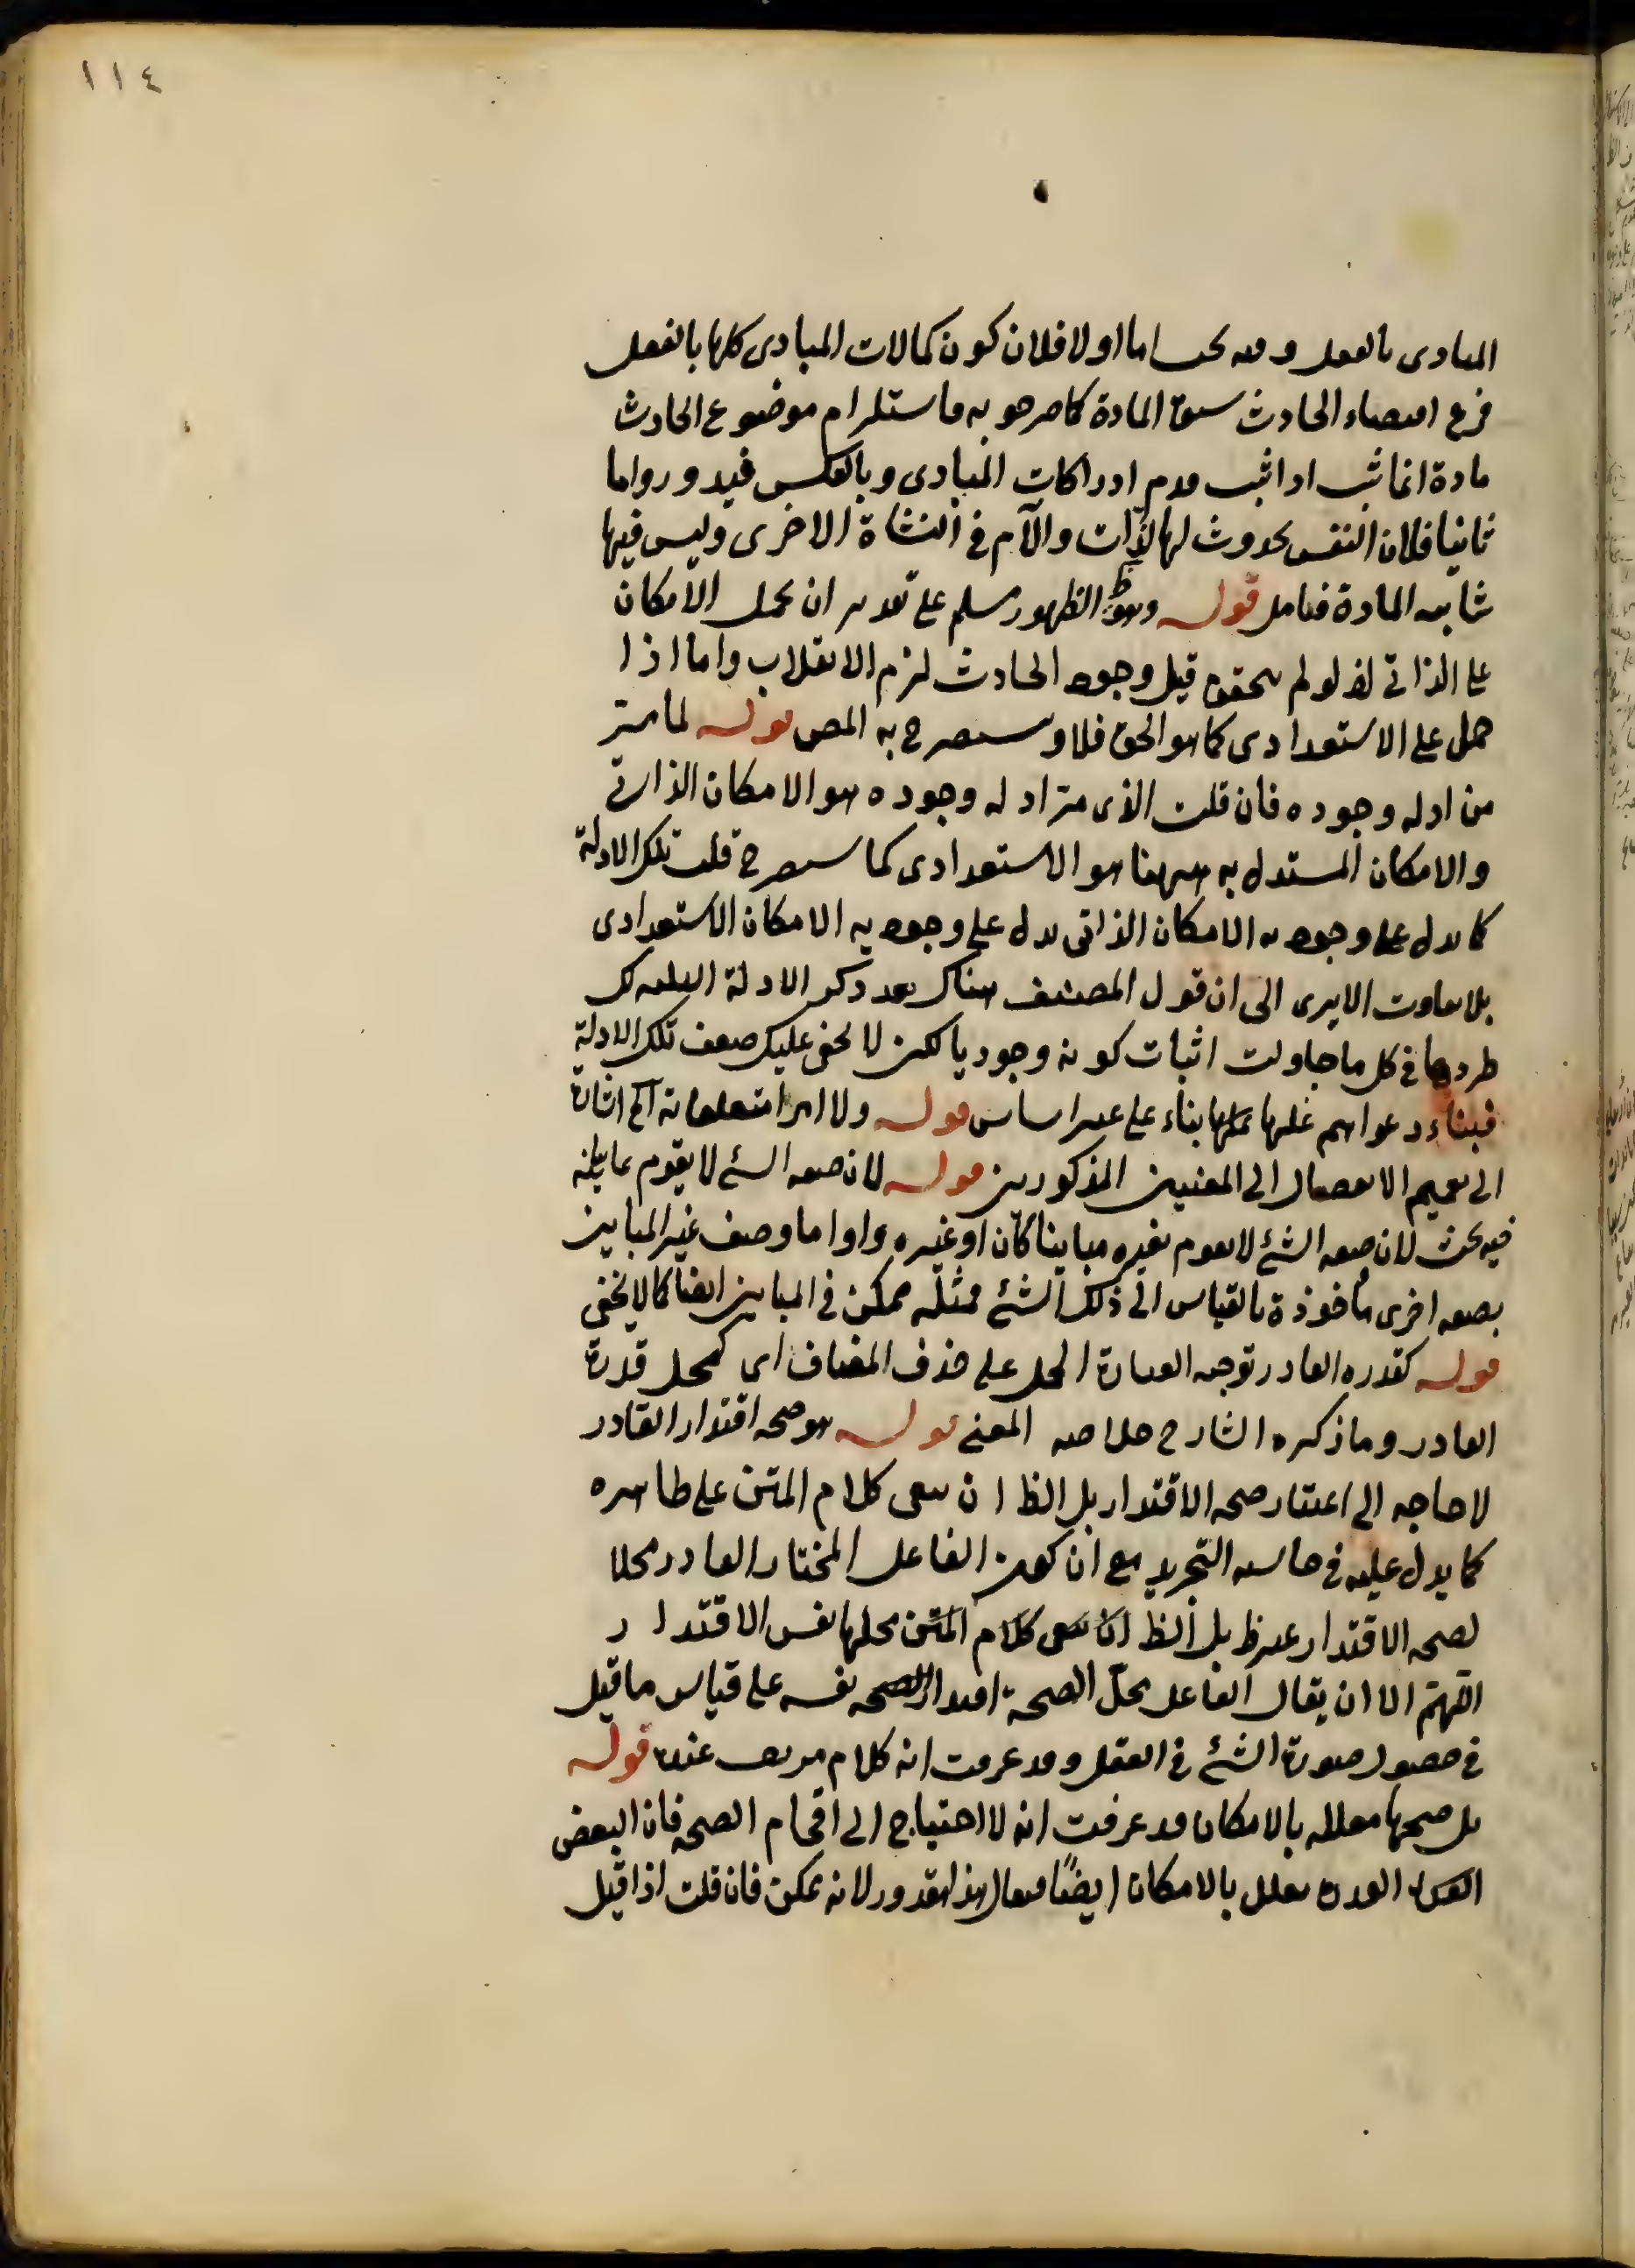 ١١٤
المبادى بالفعل وفيه بحث اما اولا فلان كون كمالات المبادى كلها بالفعل
فرع اقتضاء الحادث سبق المادة كما صرحو به فاستلزام موضوع الحادث
مادة انما ثبت اذا ثبت قدم ادراكات المبادى وبالعكس فيدور واما
ثانيا فلان النفس يحدث لها لذات وآلام فى النشاة الاخرى وليس فيها
شائبه المادة فتامل قوله وهو الظهور مسلم على تقدير ان يحمل الامكان
على الذاتى اذ لو لم يتحقق قبل وجود الحادث لزم الانقلاب واما اذا
حمل على الاستعدادى كما هو الحق فلا وسيصرح به المص قوله لما مر
من ادلة وجوده فان قلت الذى مر ادله وجوده هو الامكان الذاتى
والامكان المستدل به ههنا هو الاستعدادى كما سيصرح قلت تلك الادلة
كما يدل على وجوديه الامكان الذاتى يدل على وجوديه الامكان الاستعدادى
بلا تفاوت الا يرى الى ان قول المصنف هناك بعد ذكر الادلة الثلثه لك
طردها فى كل ما حاولت اثبات كونه وجوديا لكن لا يخفى عليك ضعف تلك الادلة
فبناء دعواهم عليها بناء على غير اساس قوله ولا امرا منفصلا عنه الخ اشارة
الى تعميم الانفصال الى المعنيين المذكورين قوله لان صفه الشئ لا يقوم بما يباينه
فيه بحث لان صفه الشئ لا يقوم بغيره مباينا كان او غيره واذا ما وصف غير المباين
بصفه اخرى ماخوذة بالقياس الى ذلك الشئ فمثله ممكن فى المباين ايضا كما لا يخفى
قوله كقدره القادر توجيه العبارة الحمل على حذف المضاف اى كمحل قدرة
القادر وما ذكره الشارح خلاصه المعنى قوله هو صحه اقتدار القادر
لا حاجه الى اعتبار صحه الاقتدار بل الظ ان يبقى كلام المتن على ظاهره
كما يدل عليه فى حاشيه التجريد مع ان كون الفاعل المختار القادر محلا
لصحه الاقتدار غير ظ بل الظ ان يبقى كلام المتن محلها نفس الاقتدار
اللهم الا ان يقال الفاعل محل الصحة اقتدار الصحه نفسه على قياس ما قيل
فى حصول صورة الشئ فى العقل وقد عرفت انه كلام مزيف عنده قوله
بل صحتها معلله بالامكان قد عرفت انه لا احتياج الى اقحام الصحه فان البعض
القدرة يعلل بالامكان ايضًا فيقال هذا مقدور لانه ممكن فان قلت اذا قيل